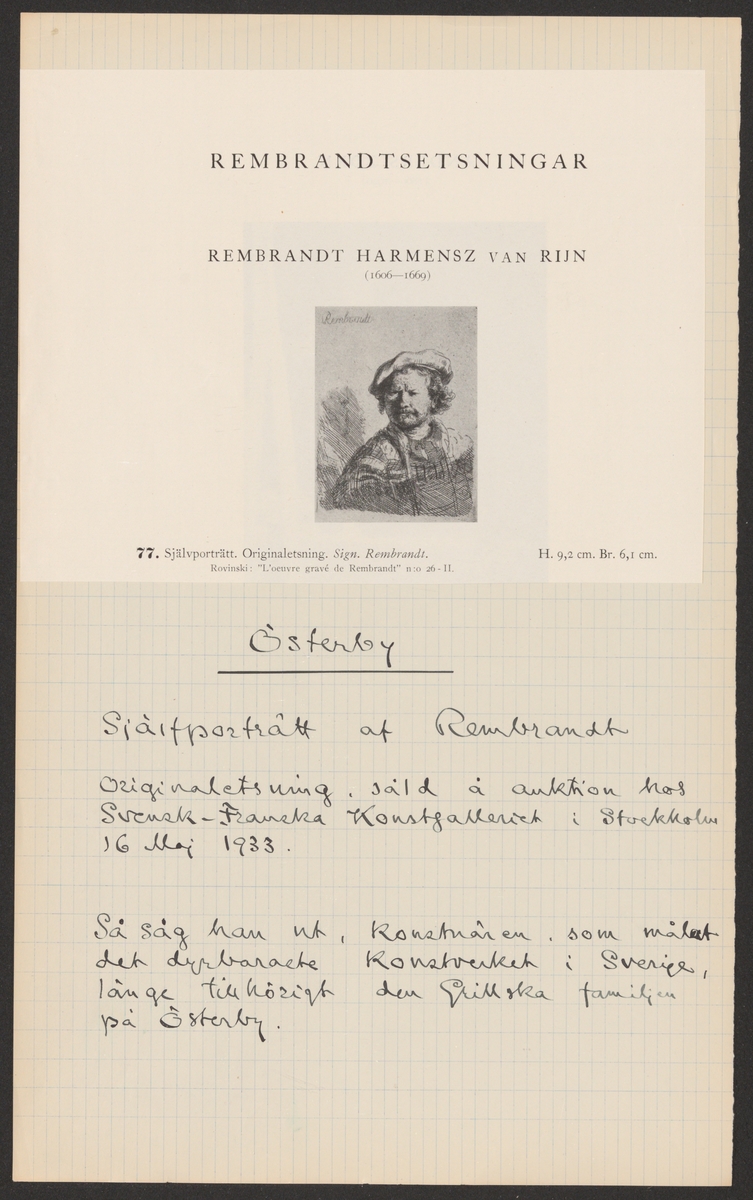 REMBRANDTSETSNINGAR
REMBRANDT HARMENSZ VAN RIJN
(1606—1669)
Rembrandt
77. Självporträtt. Originaletsning. Sign. Rembrandt. H. 9,2 cm. Br. 6,1 cm.
Rovinski: "L'oeuvre gravé de Rembrandt" n:o 26-II.
Österby
Själfporträtt af Rembrandt
Originaletsning, såld å auktion hos
Svensk-Franska Konstgalleriet i Stockholm
16 Maj 1933.
Så såg han ut, konstnären, som målat
det dyrbaraste konstverket i Sverige,
länge tillhörigt den Grillska familjen
på Österby.